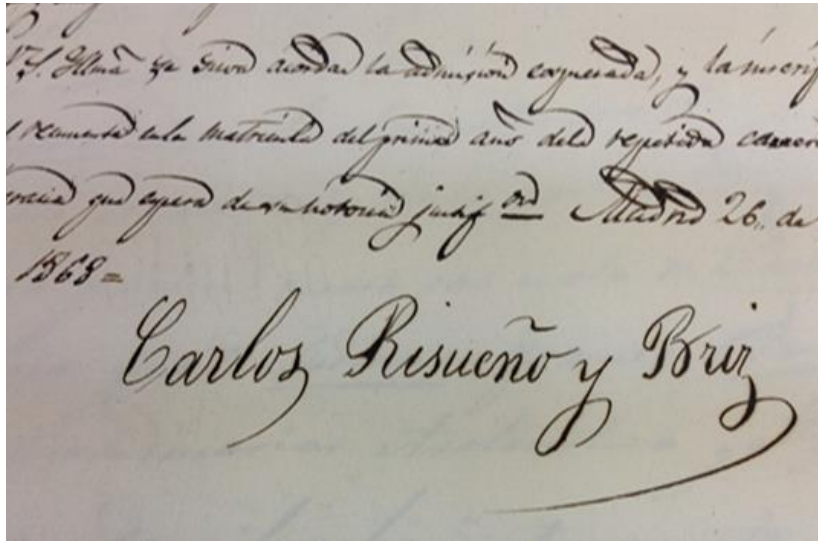 V.S. Ilmã se sirva acordar la admision expresada, y la inscrip
en la matricula del primer año de la repetida carrera
gracia que espera de su notoria justif.on Madrid 26,, de
1868=
Carlos Risueño y Briz